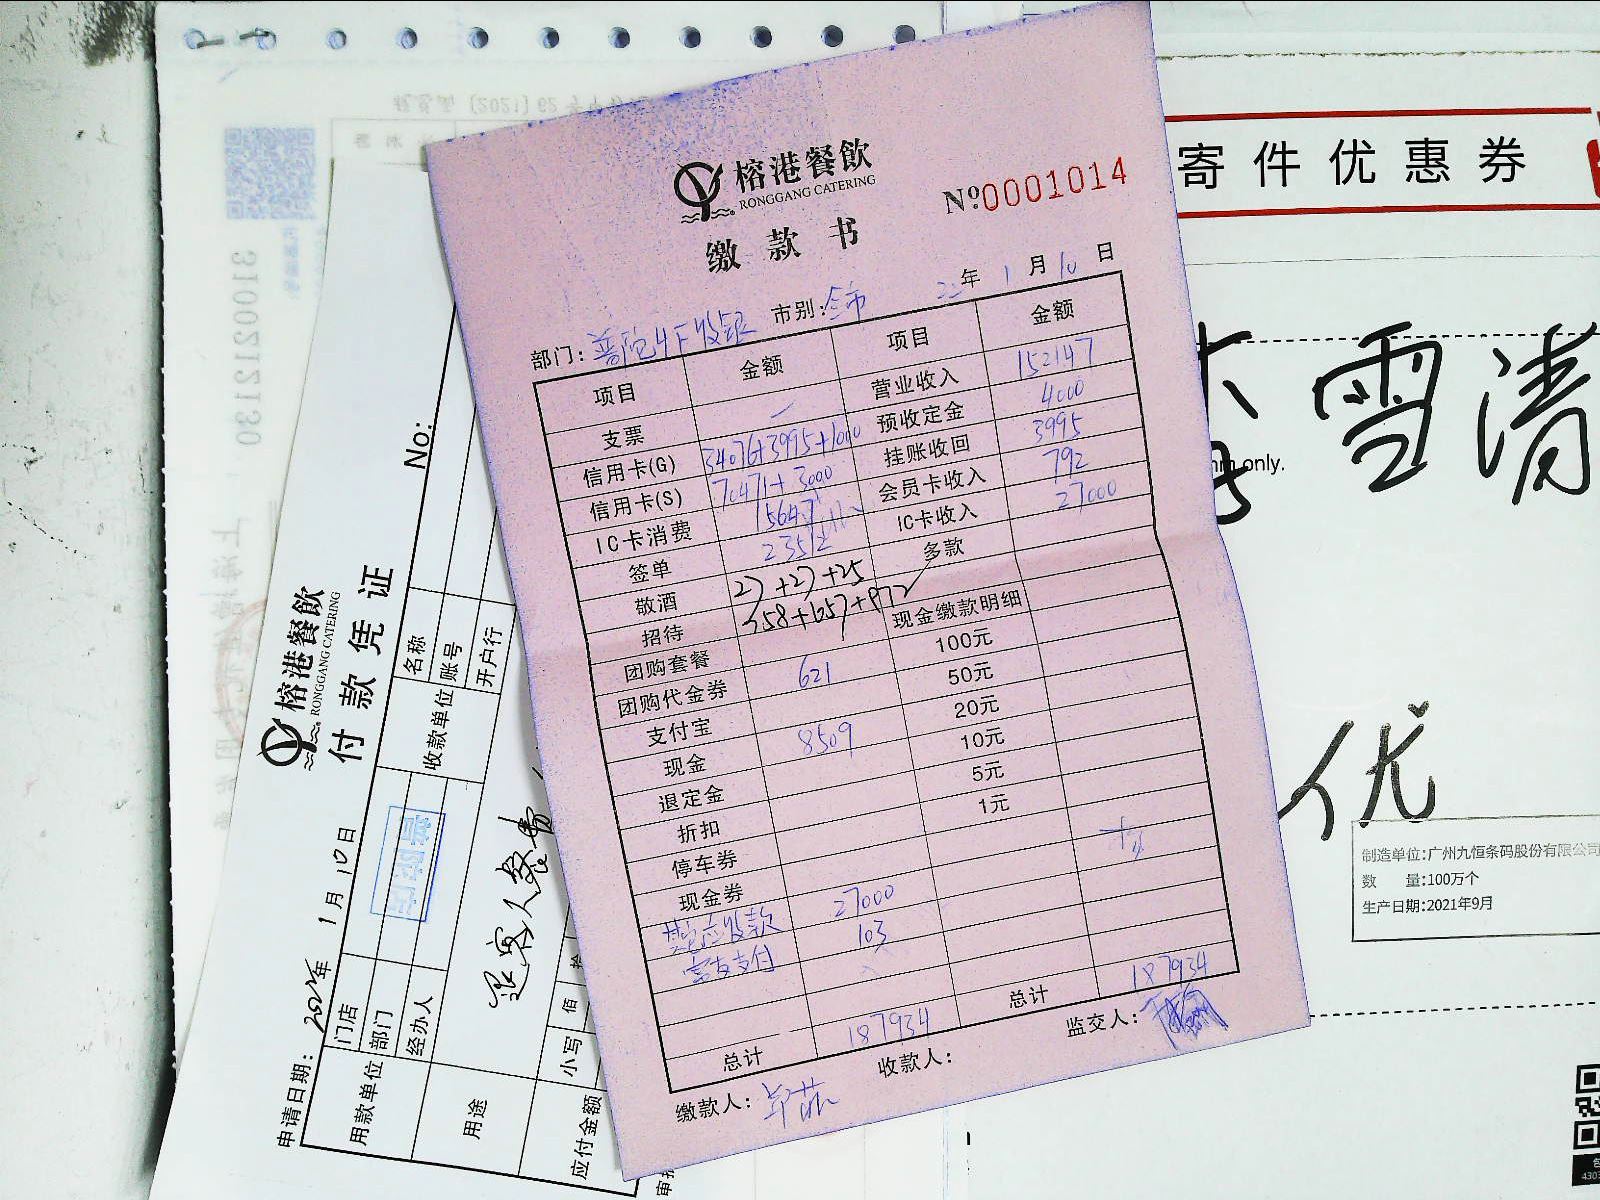 榕港餐飲
RONGGANG CATERING
缴款书
№0001014
部门: 普陀4F收银 市别: 全市 22年1月10日
项目 金额 项目 金额
支票 — 营业收入 152147
信用卡(G) 34076+3995+1000 预收定金 4000
信用卡(S) 70471+3000 挂账收回 3995
IC卡消费 15647 会员卡收入 792
签单 2352 IC卡收入 27000
敬酒 27+27+25 多款
招待 358+1657+972 现金缴款明细
团购套餐 100元
团购代金券 621 50元
支付宝 20元
现金 8509 10元
退定金 5元
折扣 1元
停车券
现金券
27000
103
总计 187934 总计 187934
缴款人: 收款人: 监交人:
榕港餐飲
RONGGANG CATERING
付款凭证
No:
申请日期: 2022年1月10日
用款单位 门店 普陀店 收款单位 名称
部门 账号
经办人 开户行
用途 退客人餐费
应付金额 小写 佰 拾
31002121130
寄件优惠券
雪清
only.
优
制造单位:广州九恒条码股份有限公司
数 量:100万个
生产日期:2021年9月